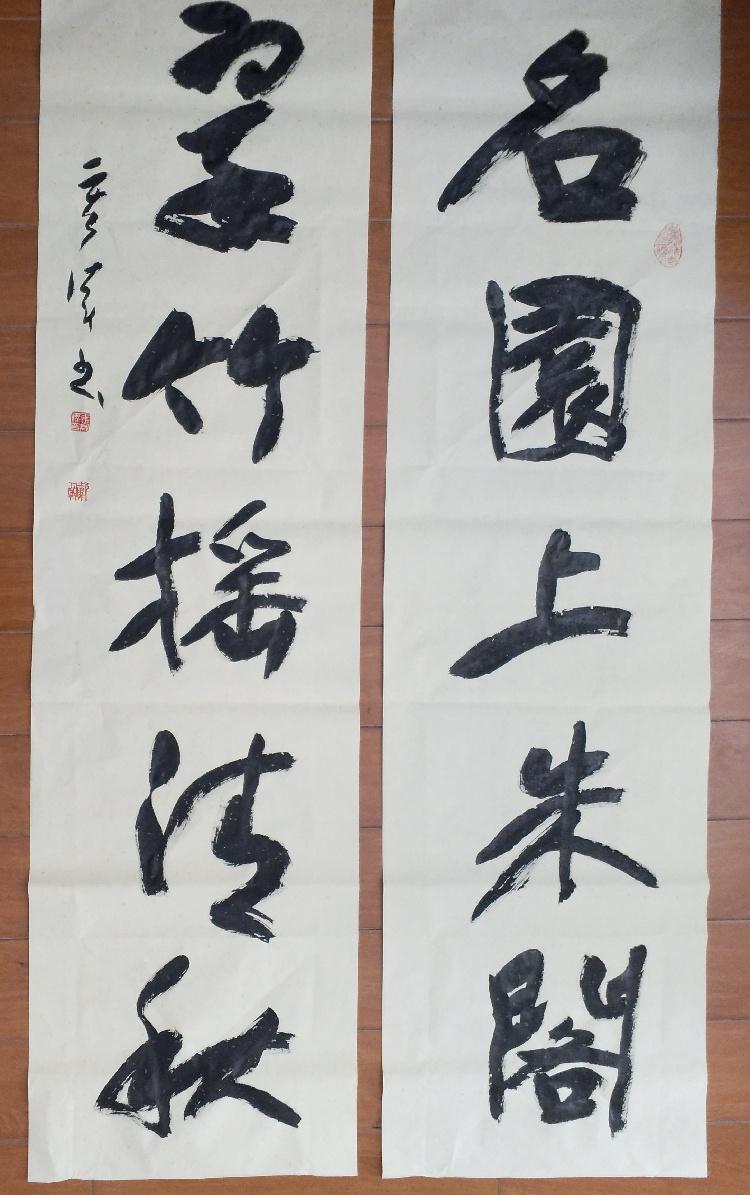 名園上朱閣
翠竹搖清秋